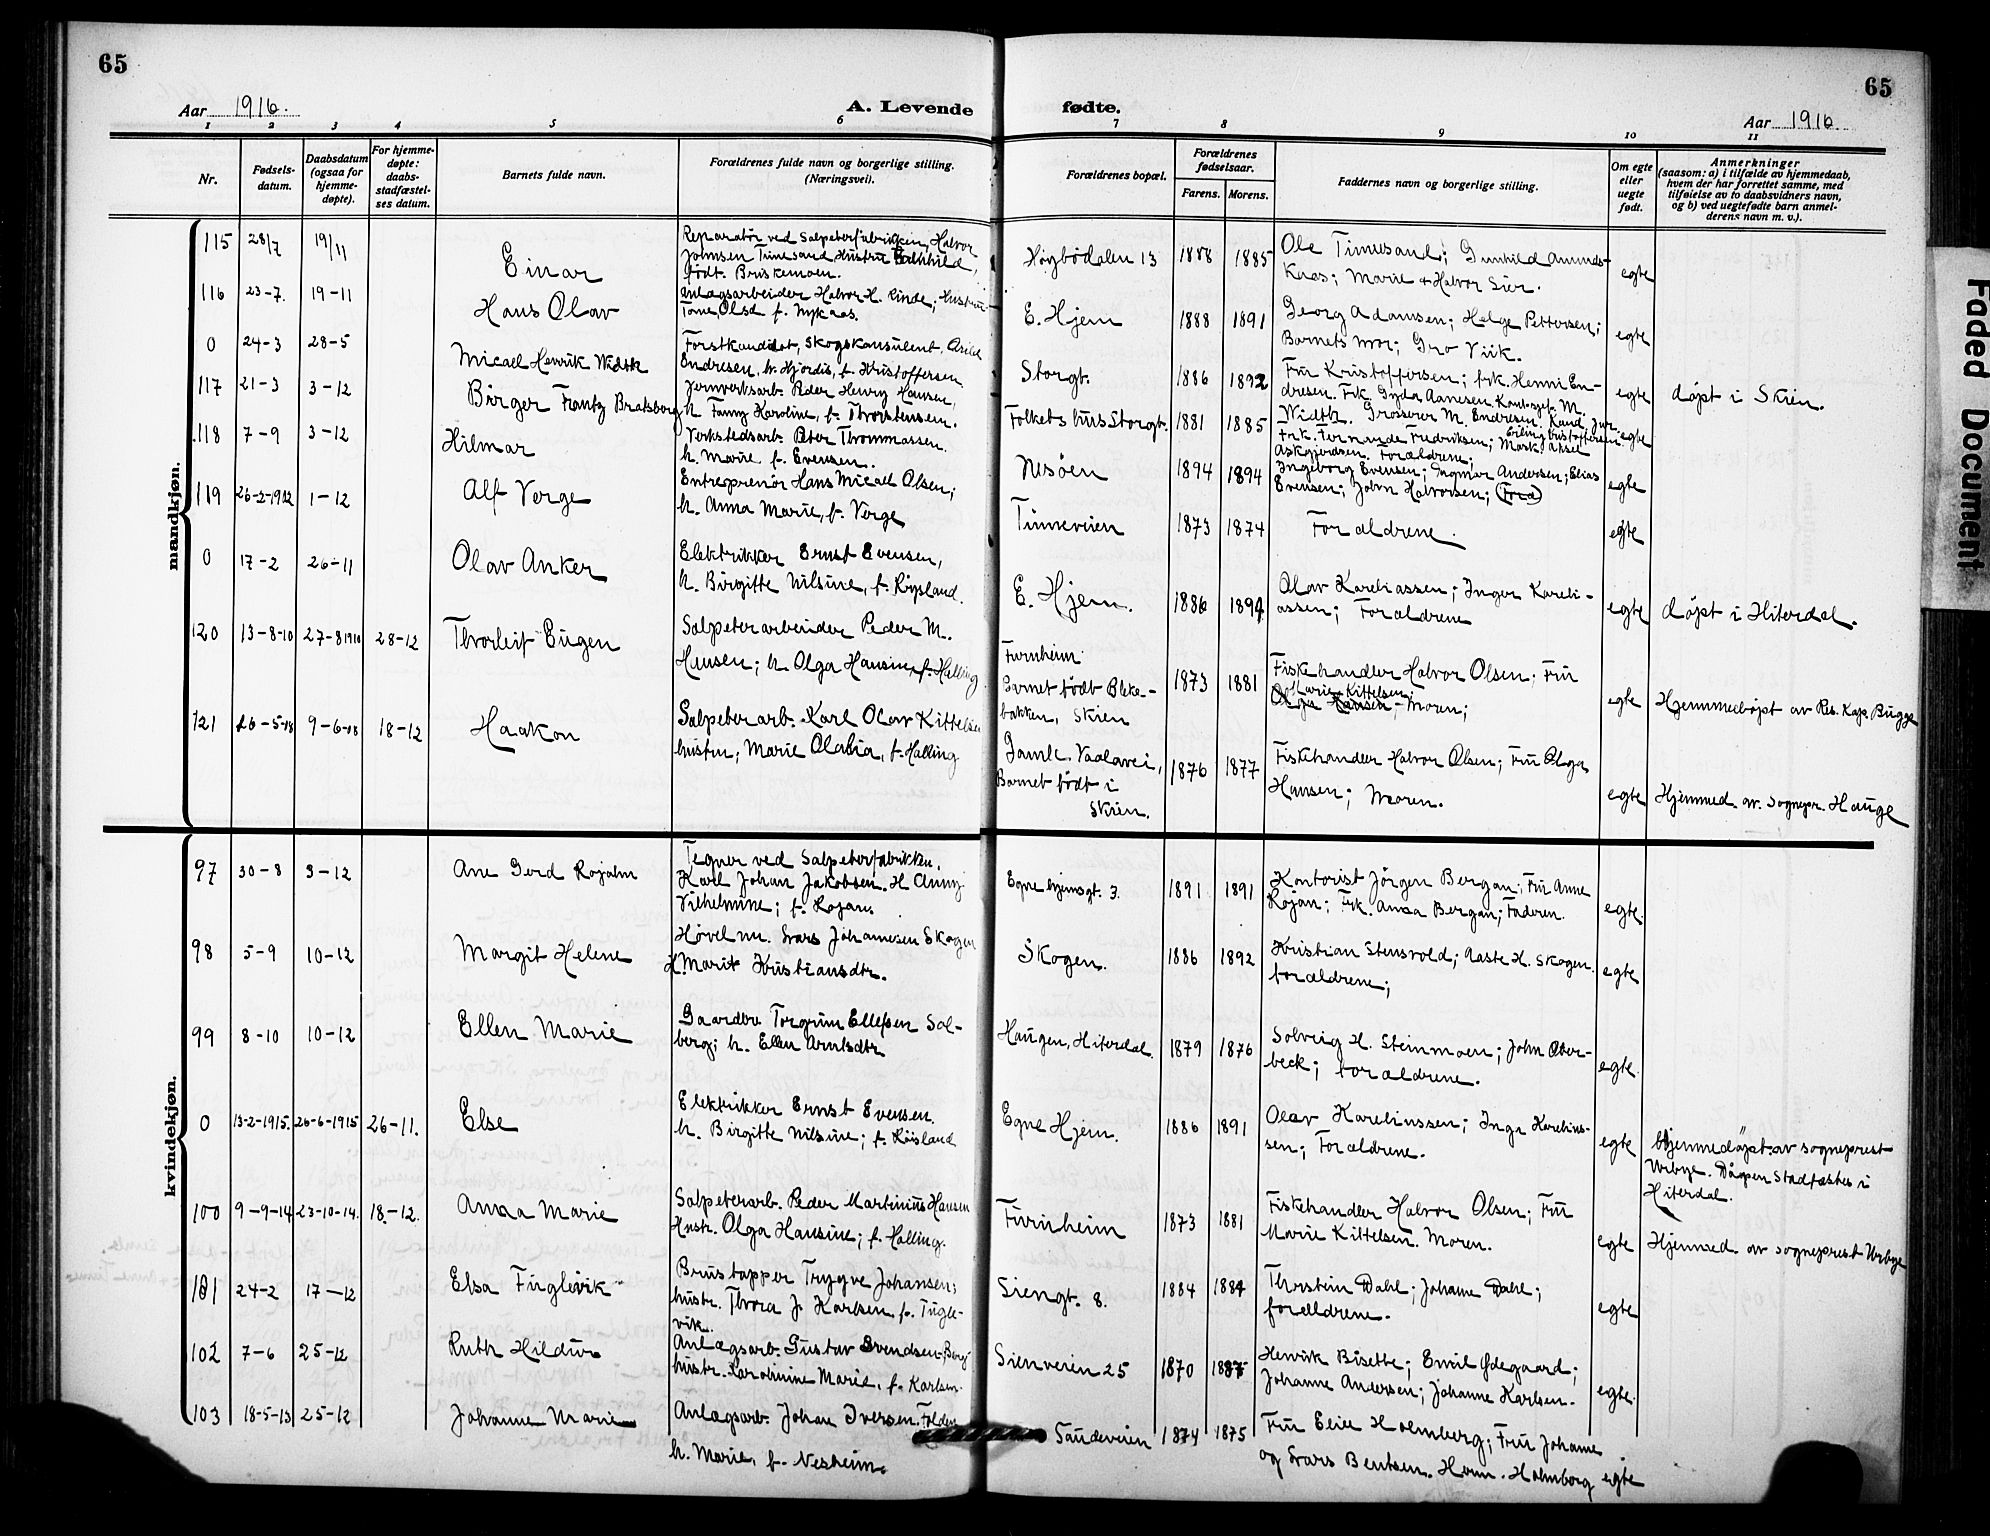 65
65
Aar 1916.
A. Levende fødte.
Aar 1916
1 2 3 4 5 6 7 8 9 10 11
Nr.
Fødsels-
datum.
Daabsdatum
(ogsaa for
hjemme-
døpte).
For hjemme-
døpte:
daabs-
stadfæstel-
ses datum.
Barnets fulde navn.
Forældrenes fulde navn og borgerlige stilling.
(Næringsvei).
Forældrenes bopæl.
Forældrenes
fødselsaar.
Farens. Morens.
Faddernes navn og borgerlige stilling.
Om egte
eller
uegte
født.
Anmerkninger
(saasom: a) i tilfælde av hjemmedaab,
hvem der har forrettet samme, med
tilføielse av to daabsvidners navn,
og b) ved uegtefødte barn anmel-
derens navn m. v.).
mandkjøn.
115 28/7 19/11 Einar
Reparatør ved Salpeterfabrikken, Halvor
Johnsen Timesand Hustru
født. Briskemoen.
Høgbødalen 13 1888 1885
Ole Timesand; Gunhild Amunds-
Kaas; Marie + Halvor Sier.
egte
116 23-7. 19-11 Hans Olav
Anlægsarbeider Halvor H. Rinde; Hustru
Tone Olsd f. Mykaas.
E. Hjem 1888 1891
Georg Adamsen; Helge Pettersen;
Barnets mor; Gro Viik.
egte
0 24-3 28-5 Micael Henrik Width
Forstkandidat, Skogskonsulent. Arild
Endresen, h. Hjordis, f. Kristoffersen
Storgt. 1886 1892
Fru Kristoffersen; frk. Henni En-
dresen. Frk Gyda Aanesen. M.
Width. Grosserer M. Endresen. Kand. jur.
Erling Kristoffersen
egte døpt i Skien.
117 21-3 3-12 Birger Frantz Bratsberg
Jernverksarb. Peder Henry Hansen,
h. Fanny Karoline, f. Thorstensen.
Folkets hus Storgt. 1881 1885
Frk. Fernanda Fredriksen; Mask. Aksel
Askgjerdsen. Forældrene;
egte
118 7-9 3-12 Hilmar
Verkstedsarb. Peter Thommassen.
h. Marie f. Evensen.
Nesøen 1894 1894
Ingeborg Evensen; Ingmar Andersen; Elias
Evensen; John Halvorsen;
egte
119 26-2-1912 1-12 Alf Verge
Entreprenør Hans Micael Olsen;
h. Anna Marie, f. Verge
Tinneveien 1873 1874
Forældrene.
egte
0 17-2 26-11 Olav Anker
Elektrikker Ernst Evensen,
h. Birgitte Nilsine, f. Röysland.
E. Hjem. 1886 1891
Olav Kareliassen; Inger Kareli-
assen; Forældrene
egte døpt i Hiterdal.
120 13-8-10 27-8 1910 28-12 Thorleif Eugen
Salpeterarbeider Peder M.
Hansen; h. Olga Hansine, f. Halling
Furnheim
Barnet født Bleke-
bakken, Skien
1873 1881
Fiskehandler Halvor Olsen; Fru
Marie Kittelsen;
Olga Hansen, Moren;
egte Hjemmedøpt av Res. Kap. Bugge
121 26-5-08 9-6-08 18-12 Haakon
Salpeterarb. Karl Olav Kittelsen
hustru; Marie Olabia, f. Halling
Gamle Vaalavei,
Barnet født i
Skien.
1876 1877
Fiskehandler Halvor Olsen; Fru Olga
Hansen; Moren.
egte Hjemmed. av. Sognepr. Hauge
kvindekjøn.
97 30-8 3-12 Ane Gerd Rojahn
Tegner ved Salpeterfabrikken.
Karl Johan Jakobsen. H Anny
Vilhelmine; f. Rojan.
Egne hjemsgt. 3. 1891 1891
Kontorist Jörgen Bergan; Fru Anne
Rojan; Frk. Anna Bergan; Faderen.
egte.
98 5-9 10-12 Margit Helene
Høvelm. Lars Johannesen Skogen
H. Marit Kristiansdtr.
Skogen. 1886 1892
Kristian Stensvold; Aaste H. Skogen.
forældrene;
egte
99 8-10 10-12 Ellen Marie
Gaardbr. Torgrim Ellefsen Sol-
berg; h. Ellen Arntsdtr
Haugen, Hiterdal. 1879 1876
Solveig H. Steinmoen; John Over-
beck; forældrene.
egte.
0 13-2-1915. 26-6-1915 26-11. Else
Elektrikker Ernst Evensen.
h. Birgitte Nilsine; f. Röisland
Egne Hjem. 1886 1891
Olav Kareliussen; Inga Karelius-
sen; Forældrene.
egte
hjemmedøpt av sogneprest
Urbye. Dåpen Stadfæstes i
Hiterdal.
100 9-9-14 23-10-14. 18-12. Anna Marie
Salpeterarb. Peder Martinius Hansen
Hustr. Olga Hansine; f. Halling.
Furnheim 1873 1881
Fiskehandler Halvor Olsen; Fru
Marie Kittelsen. Moren.
egte Hjemmed. av sogneprest Urbye
101 24-2 17-12 Elsa Fuglevik
Brustapper Trygve Johansen;
hustr. Thora J. Karlsen f. Fugle-
vik.
Siengt. 8. 1884 1884
Thorstein Dahl; Johanne Dahl;
forældrene.
egte
102 7-6 25-12 Ruth Hildur
Anlægsarb. Gustav Svendsen-Berg
hustr. Karolinine Marie, f. Karlsen.
Sienveien 25 1870 1887
Henrik Bisette; Emil Ødegaard;
Johanne Andersen; Johanne Karlsen.
egte.
103 18-5-13 25-12 Johanne Marie
Anlægsarb. Johan Iversen Folden
h. Marie, f. Nesheim.
Sandeveien 1874 1875
Fru Elise Holmberg; Fru Johanne
og Lars Bentsen. Herm. Holmborg
egte
Faded Document